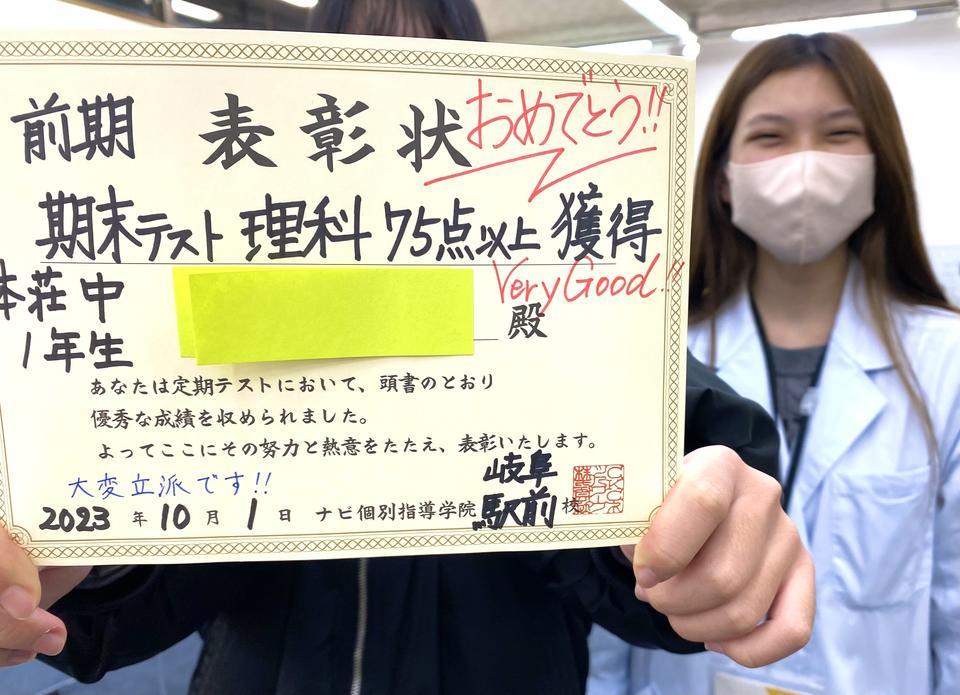 前期 表彰状 おめでとう!!
期末テスト 理科 75点以上 獲得
本荘中
1年生
Very Good!!
殿
あなたは定期テストにおいて、頭書のとおり
優秀な成績を収められました。
よってここにその努力と熱意をたたえ、表彰いたします。
大変立派です!!
2023年10月1日 ナビ個別指導学院 岐阜駅前校